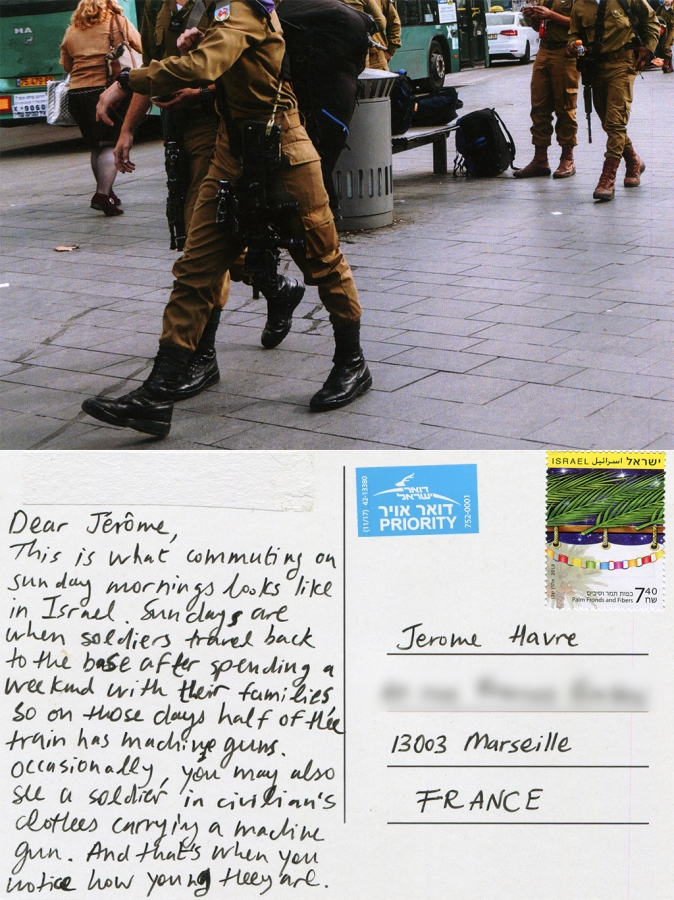 Dear Jérôme,
This is what commuting on
sunday mornings looks like
in Israel. Sundays are
when soldiers travel back
to the base after spending a
weekend with their families,
so on those days half of the
train has machine guns.
occasionally, you may also
see a soldier in civilian's
clothes carrying a machine
gun. And that's when you
notice how young they are.
(11/17) 42-13380
דואר
ישראל
דואר אויר
PRIORITY
752-0001
ISRAEL اسرائيل ישראל
כפות תמר וסיבים
Palm Fronds and Fibers
7.40
ש"ח
Jerome Havre
13003 Marseille
FRANCE